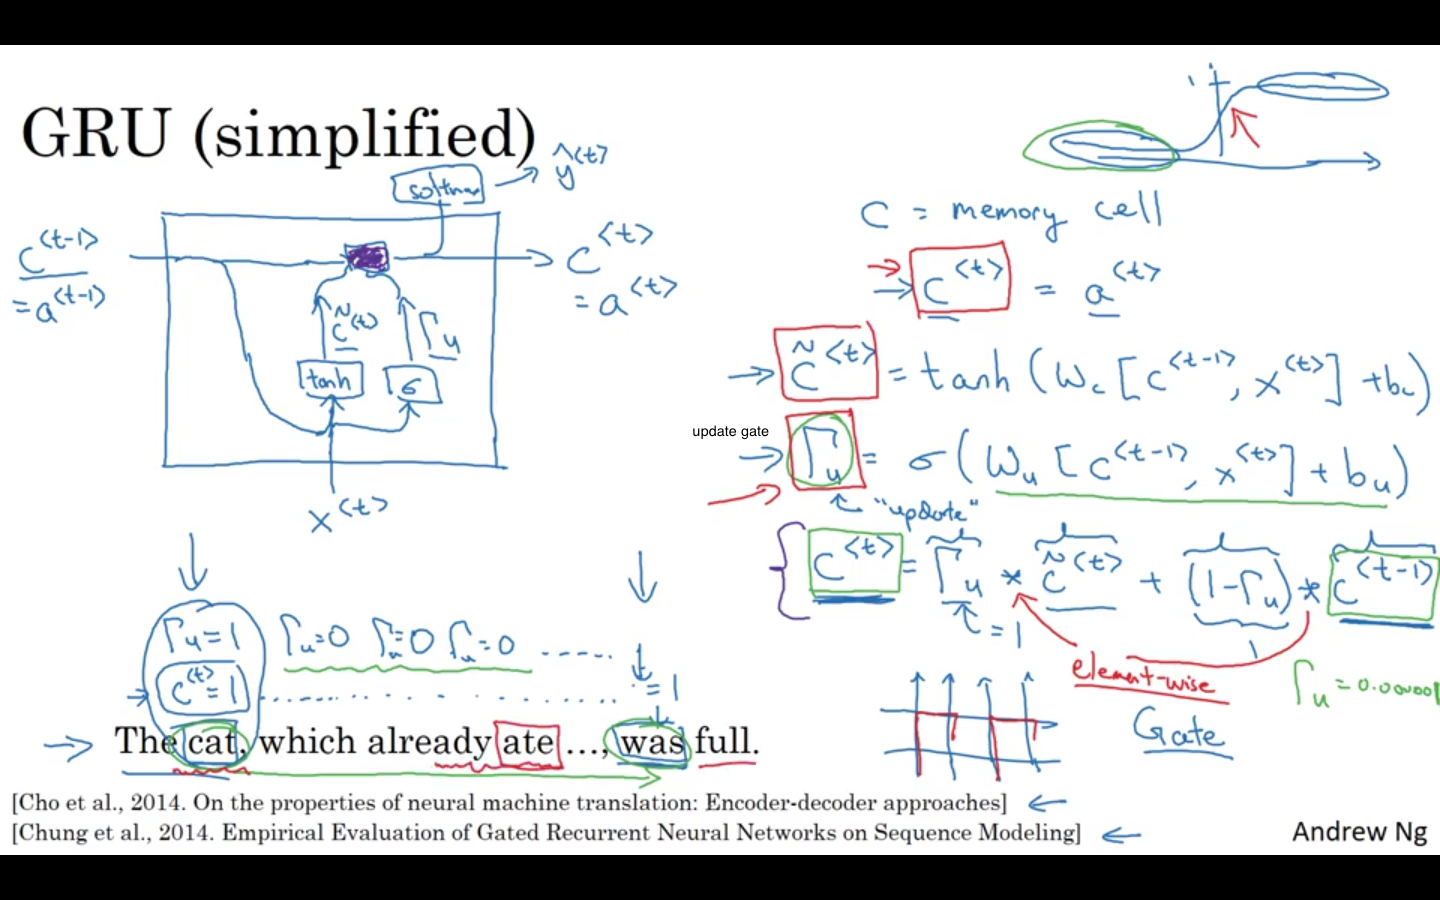 GRU (simplified)
softmax
ŷ<t>
c<t-1>
= a<t-1>
c̃<t>
Γu
tanh
σ
x<t>
c<t>
= a<t>
1
C = memory cell
c<t> = a<t>
c̃<t> = tanh (Wc [c<t-1>, x<t>] + bc)
update gate
Γu = σ (Wu [c<t-1>, x<t>] + bu)
"update"
c<t> = Γu * c̃<t> + (1-Γu) * c<t-1>
= 1
element-wise
Γu = 0.000001
Gate
Γu=1 Γu=0 Γu=0 Γu=0 .....
c<t>=1 ........ = 1
The cat, which already ate ..., was full.
[Cho et al., 2014. On the properties of neural machine translation: Encoder-decoder approaches]
[Chung et al., 2014. Empirical Evaluation of Gated Recurrent Neural Networks on Sequence Modeling]
Andrew Ng